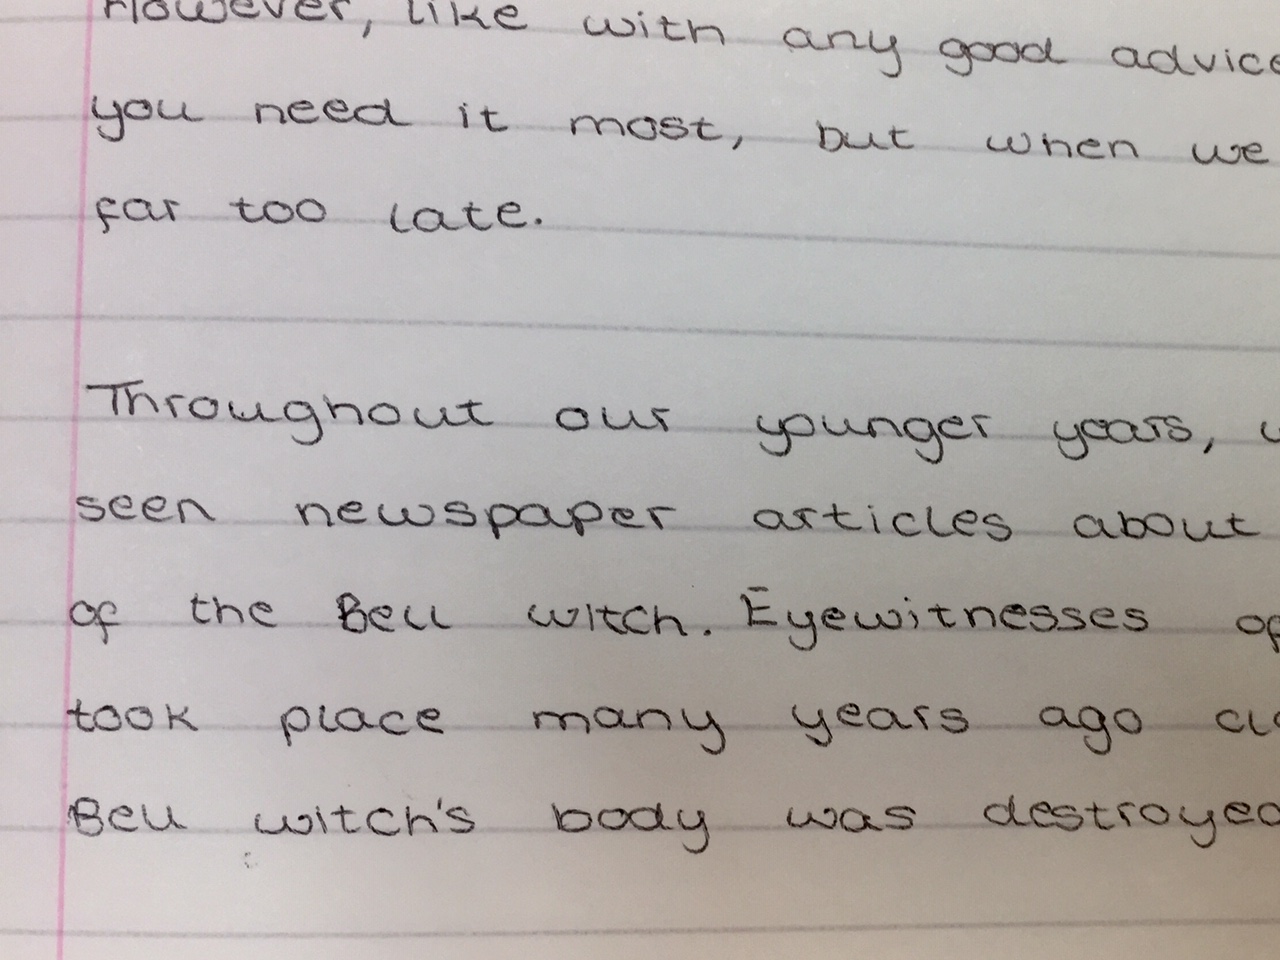 However, like with any good advice
you need it most, but when we
far too late.
Throughout our younger years,
seen newspaper articles about
of the Bell witch. Eyewitnesses of
took place many years ago
Bell witch's body was destroyed